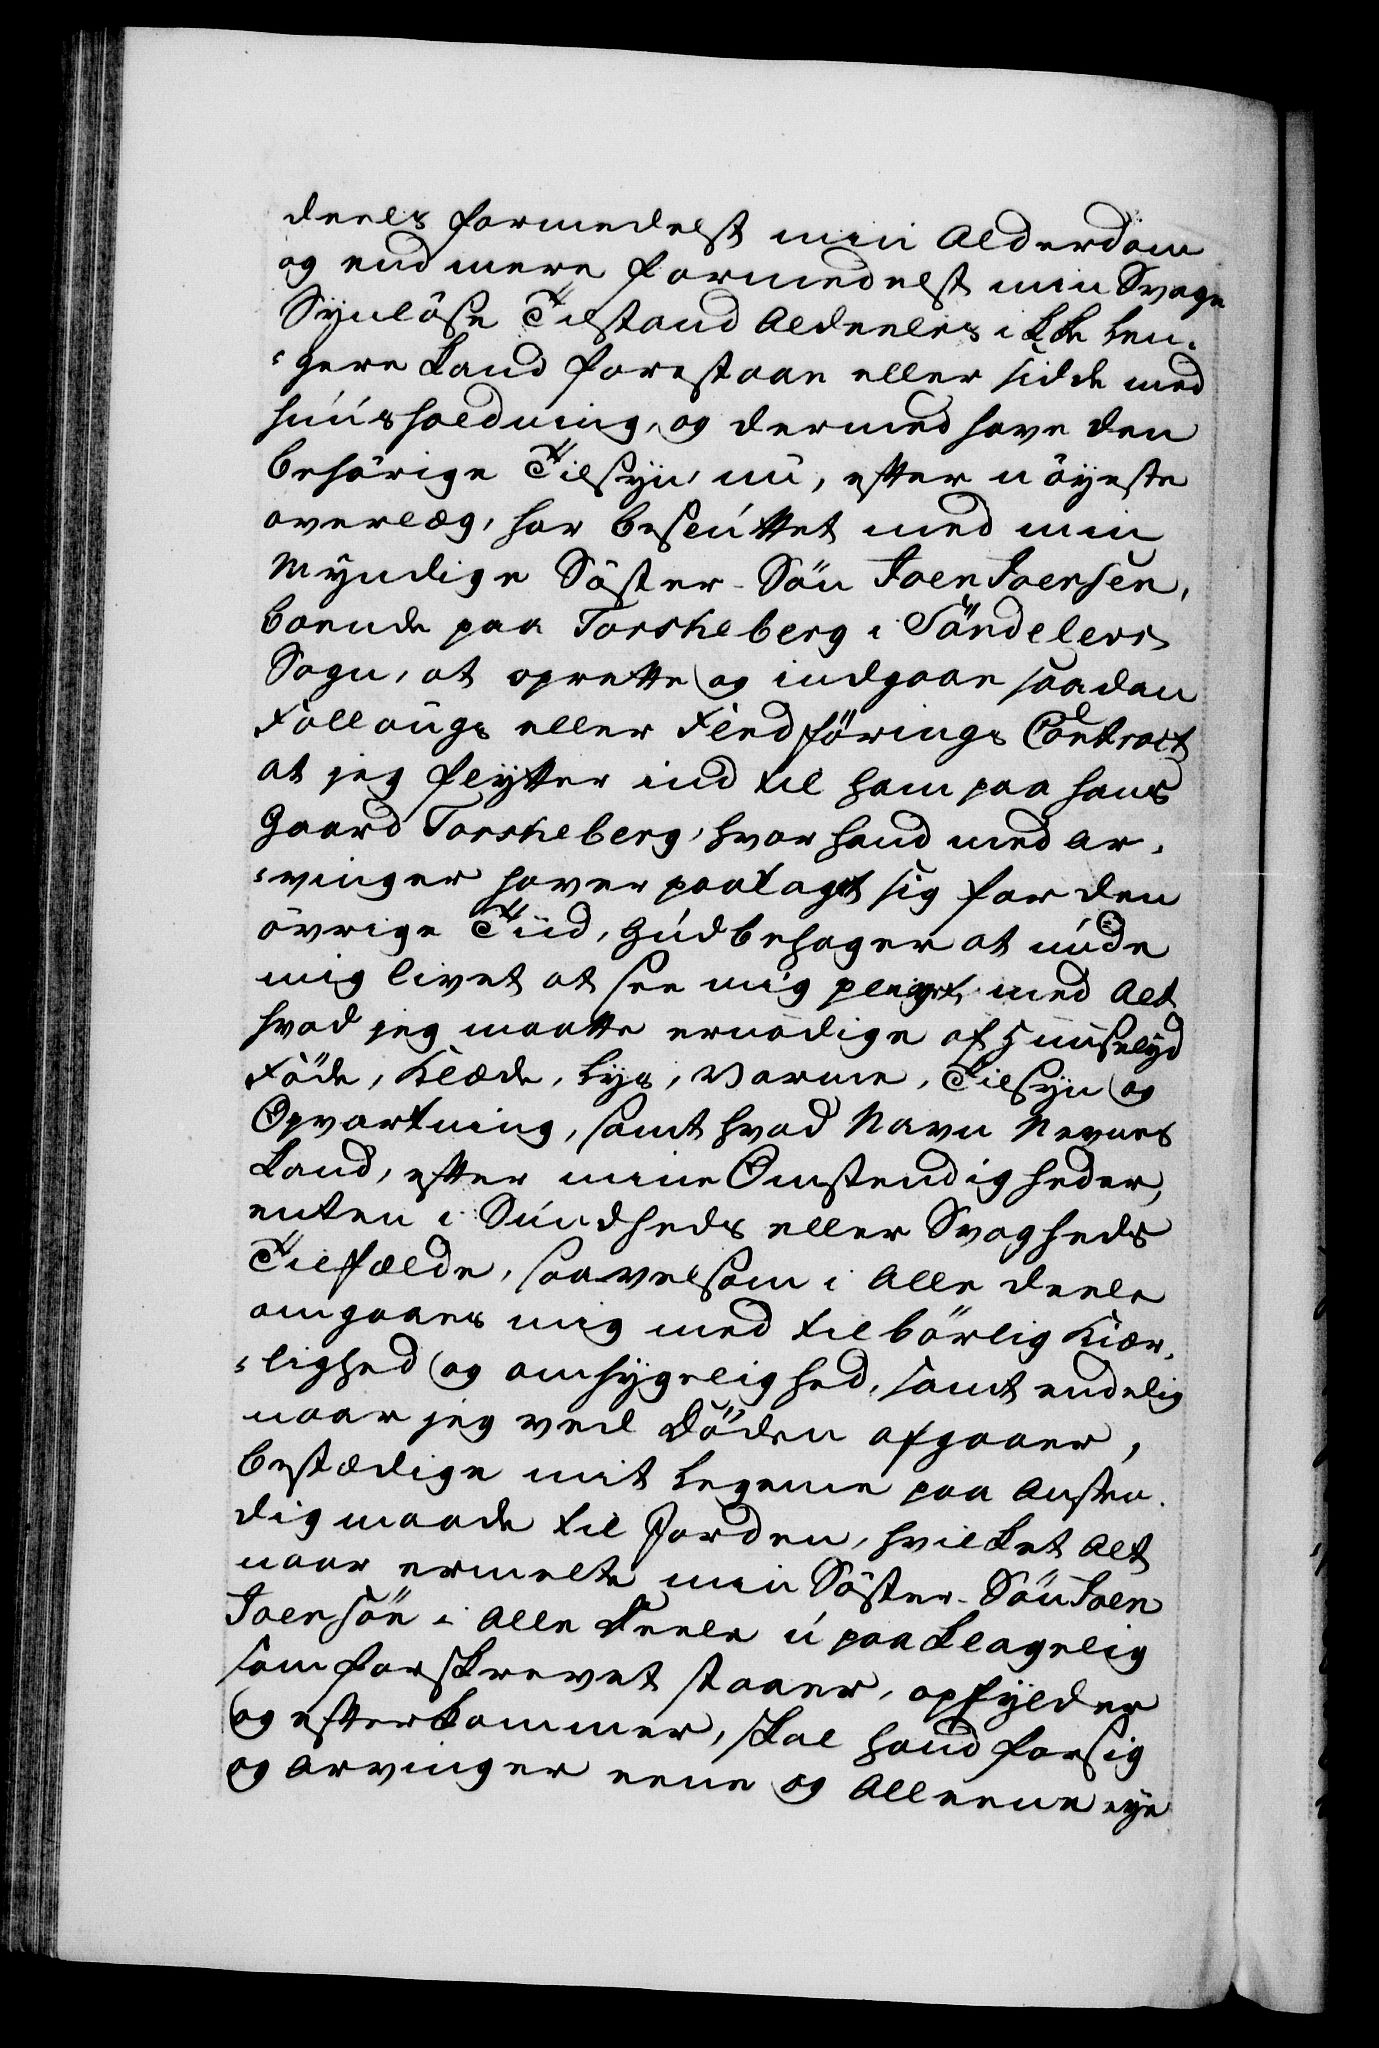 deels formedelst min Alderdom
og end mere formedelst min Svage
Synløse Tilstand Aldeeles ikke len-
-gere kand forestaae eller sidde med
huusholdning, og dermed have den
behørige Tilsyn, nu, efter nøyeste
overlæg, har besluttet med min
Myndige Søster-Søn Joen Joensen,
boende paa Torskeberg i Søndelevs
Sogn, at oprette og indgaae saadan
Follougs eller Fledførings Contract
at jeg flytter ind til ham paa hans
Gaard Torskeberg, hvor hand med Ar-
-vinger haver paataget sig for den
øvrige Tiid, Gud behager at unde
mig livet at see mig pleiyet med Alt
hvad jeg maatte ernødige af Huuselyd
Føde, Klæde, Lys, Varme, Tilsyn og
Opvartning, samt hvad Navn Nevnes
kand, efter mine Omstendigheder,
enten i Sundheds eller Svagheds
Tilfælde, saavelsom i Alle deele
omgaaes mig med tilbørlig Kiær-
-lighed og omhyggelighed, samt endelig
naar jeg ved Døden afgaaer,
bestædige mit Legeme paa Ansten-
dig maade til Jorden, hvilket Alt
naar ermelte min Søster-Søn Joen
Joensøn i Alle Deele upaaklagelig
som forskrevet staaer, opfylder
og efterkommer, skal hand for sig
og Arvinger eene og Alleene eye